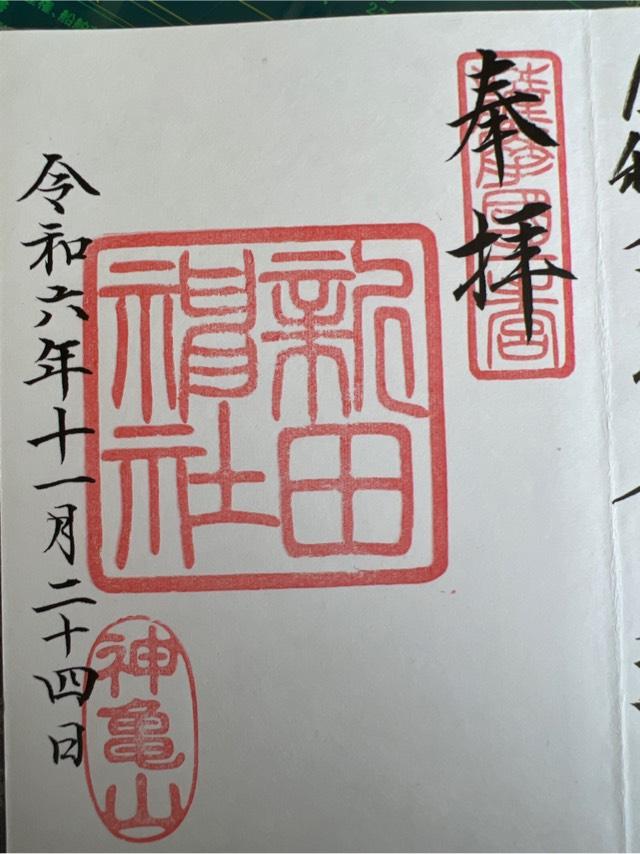 奉拝
薩摩國一宮
新田
神社
令和六年十一月二十四日
神亀山